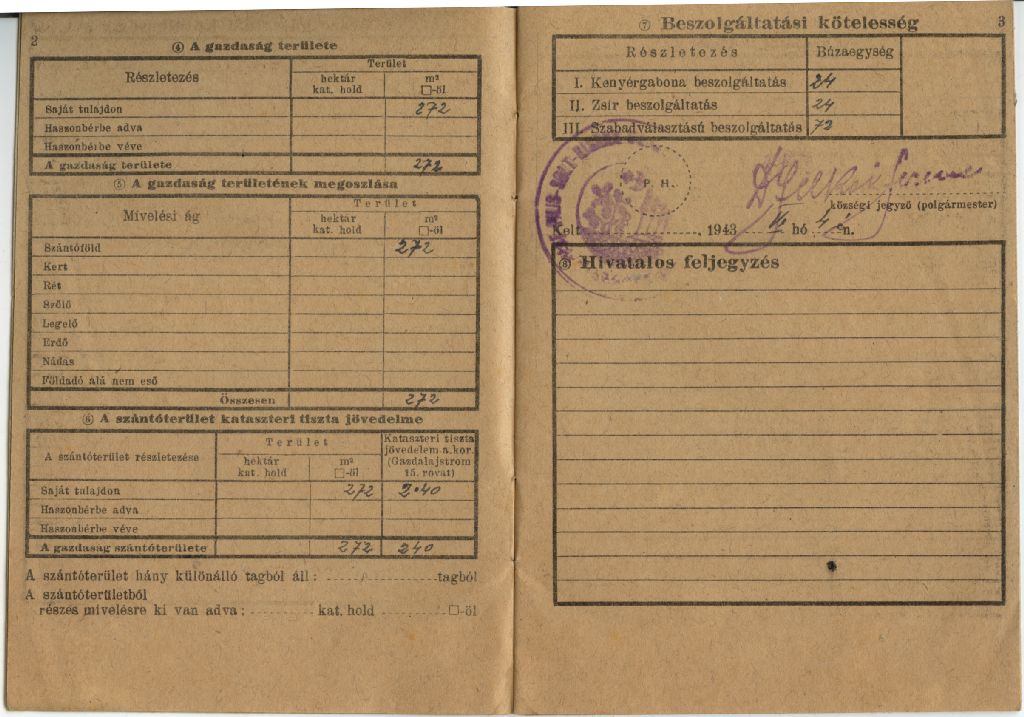 2
④ A gazdaság területe
Részletezés
Terület
hektár
kat. hold
m²
□-öl
Saját tulajdon 272
Haszonbérbe adva
Haszonbérbe véve
A gazdaság területe 272
⑤ A gazdaság területének megoszlása
Mívelési ág
Terület
hektár
kat. hold
m²
□-öl
Szántóföld 272
Kert
Rét
Szőlő
Legelő
Erdő
Nádas
Földadó alá nem eső
Összesen 272
⑥ A szántóterület kataszteri tiszta jövedelme
A szántóterület részletezése
Terület
hektár
kat. hold
m²
□-öl
Kataszteri tiszta
jövedelem a. kor.
(Gazdalajstrom
15. rovat)
Saját tulajdon 272 2·40
Haszonbérbe adva
Haszonbérbe véve
A gazdaság szántóterülete 272 240
A szántóterület hány különálló tagból áll: tagból
A szántóterületből
részes mívelésre ki van adva: kat. hold □-öl
3
⑦ Beszolgáltatási kötelesség
Részletezés Búzaegység
I. Kenyérgabona beszolgáltatás 24
II. Zsír beszolgáltatás 24
III. Szabadválasztású beszolgáltatás 72
P. H.
községi jegyző (polgármester)
Kelt , 1943 VI hó 4 én.
⑧ Hivatalos feljegyzés